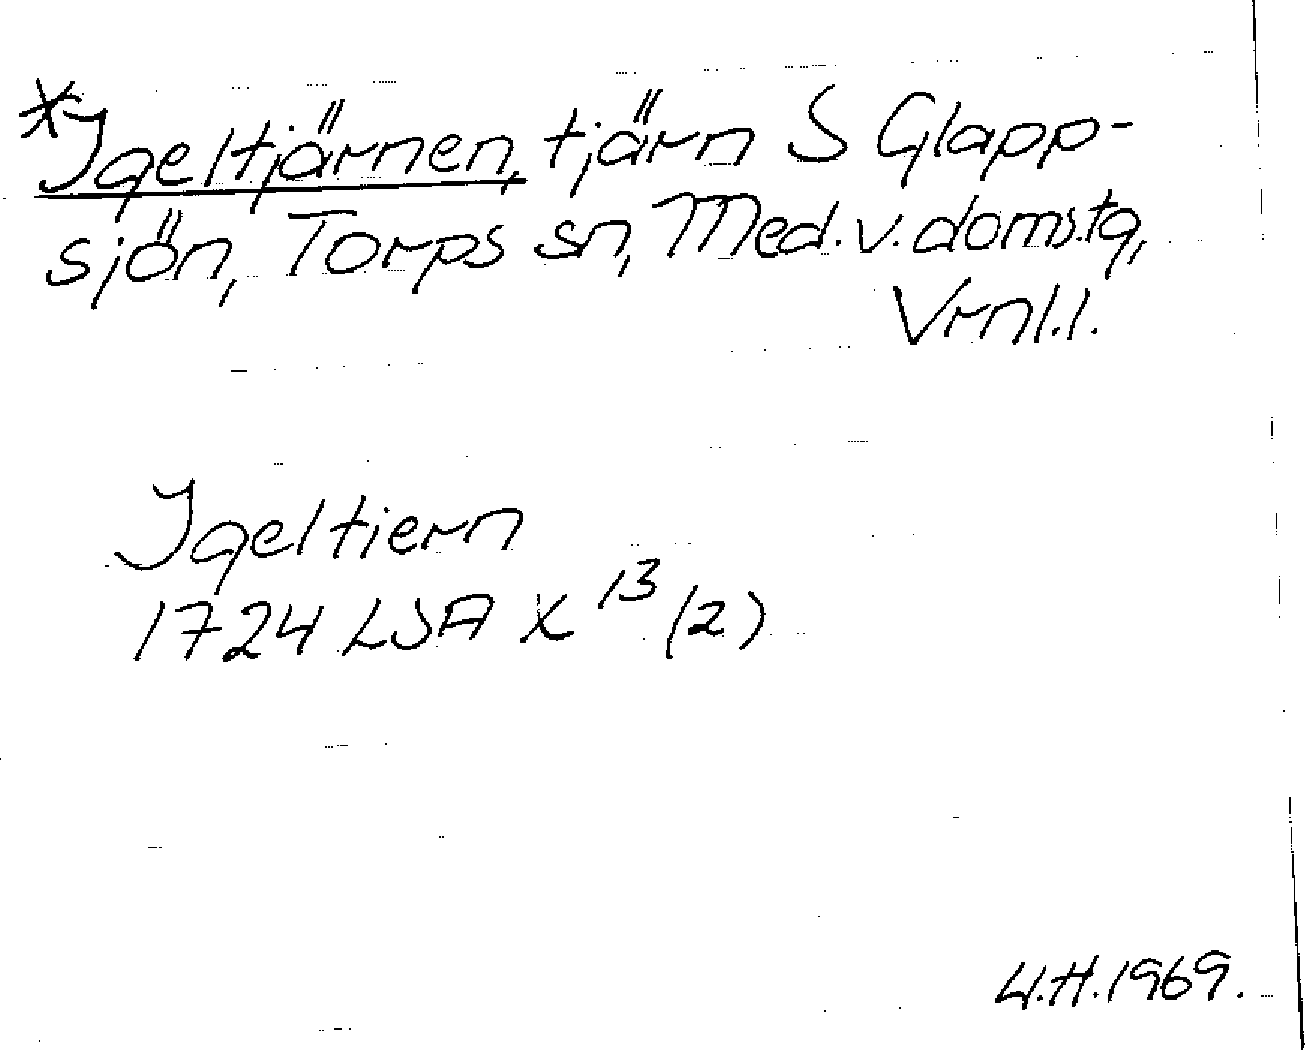 *Igeltjärnen, tjärn S Glapp-
sjön, Torps sn, Med.v.doms.tg,
Vrnl.l.
Igeltiern
1724 LSA X 13 (2)
U.H.1969.